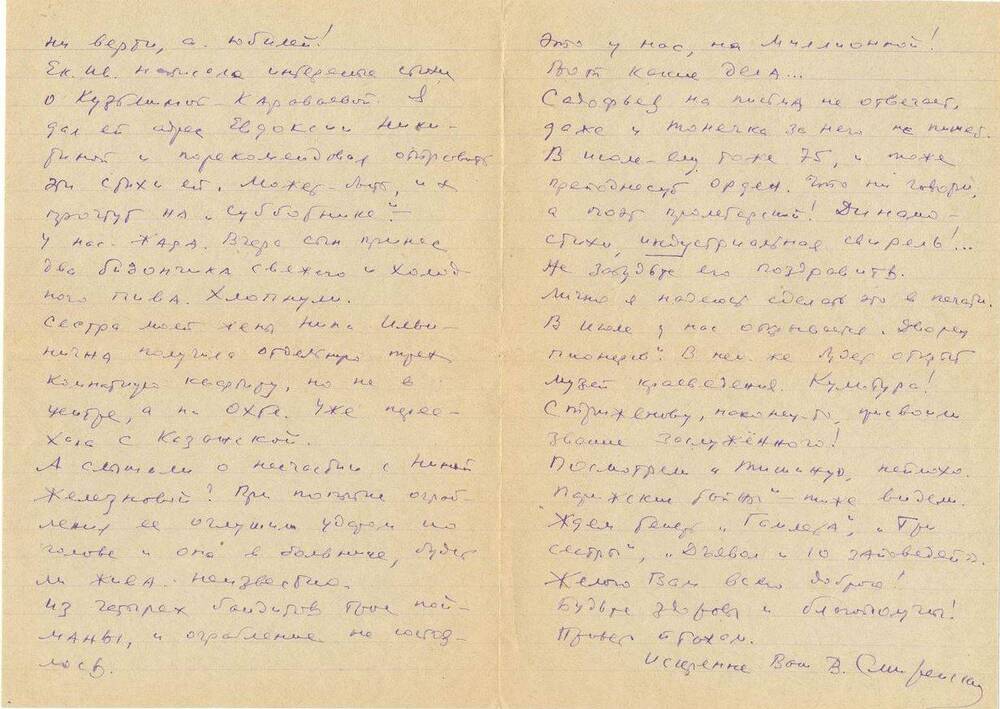 ни верти, а юбилей!
Ек. Ив. написала интересные стихи
о Кузьминой-Караваевой. Я
дал ей адрес Евдоксии Ники-
тиной и порекомендовал отправить
эти стихи ей. Может быть, их
прочтут на „субботнике“.
У нас жара. Вчера сын принес
два бидончика свежего и холод
ного пива. Хлопнули.
Сестра моей жены Нина Ильи-
нична получила отдельную трех
комнатную квартиру, но не в
центре, а на Охте. Уже перее-
хала с Казанской.
А слышали о несчастии с Ниной
Железновой? При попытке ограб-
ления ее оглушили ударом по
голове и она в больнице, будет
ли жива - неизвестно.
Из четырех бандитов трое пой-
маны, и ограбление не состоя-
лось.
Это у нас, на Миллионной!
Вот какие дела...
Садофьев на письма не отвечает,
даже и Тонечка за него не пишет.
В июле ему тоже 75, и тоже
преподнесут орден. Что ни говори,
а поэт пролетарский! Динамо-
стихи, индустриальная свирель!...
Не забудьте его поздравить.
Лично я надеюсь сделать это в печати.
В июле у нас открывается „Дворец
пионеров“. В нем же будет открыт
музей краеведения. Культура!
Стриженову, наконец-то, присвоили
звание Заслужённого!
Посмотрели и „Тишину“, неплохо.
„Парижские тайны“ - тоже видели.
Ждем теперь „Гамлета“, „Три
сестры“, „Дьявол и 10 заповедей“.
Желаю Вам всего доброго!
Будьте здоровы и благополучны!
Привет
Искренне Ваш В. Смиренский